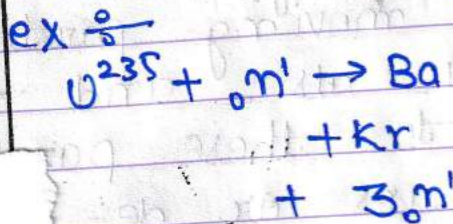 ex ÷
U²³⁵ + ₀n¹ → Ba
+ Kr
+ 3₀n¹